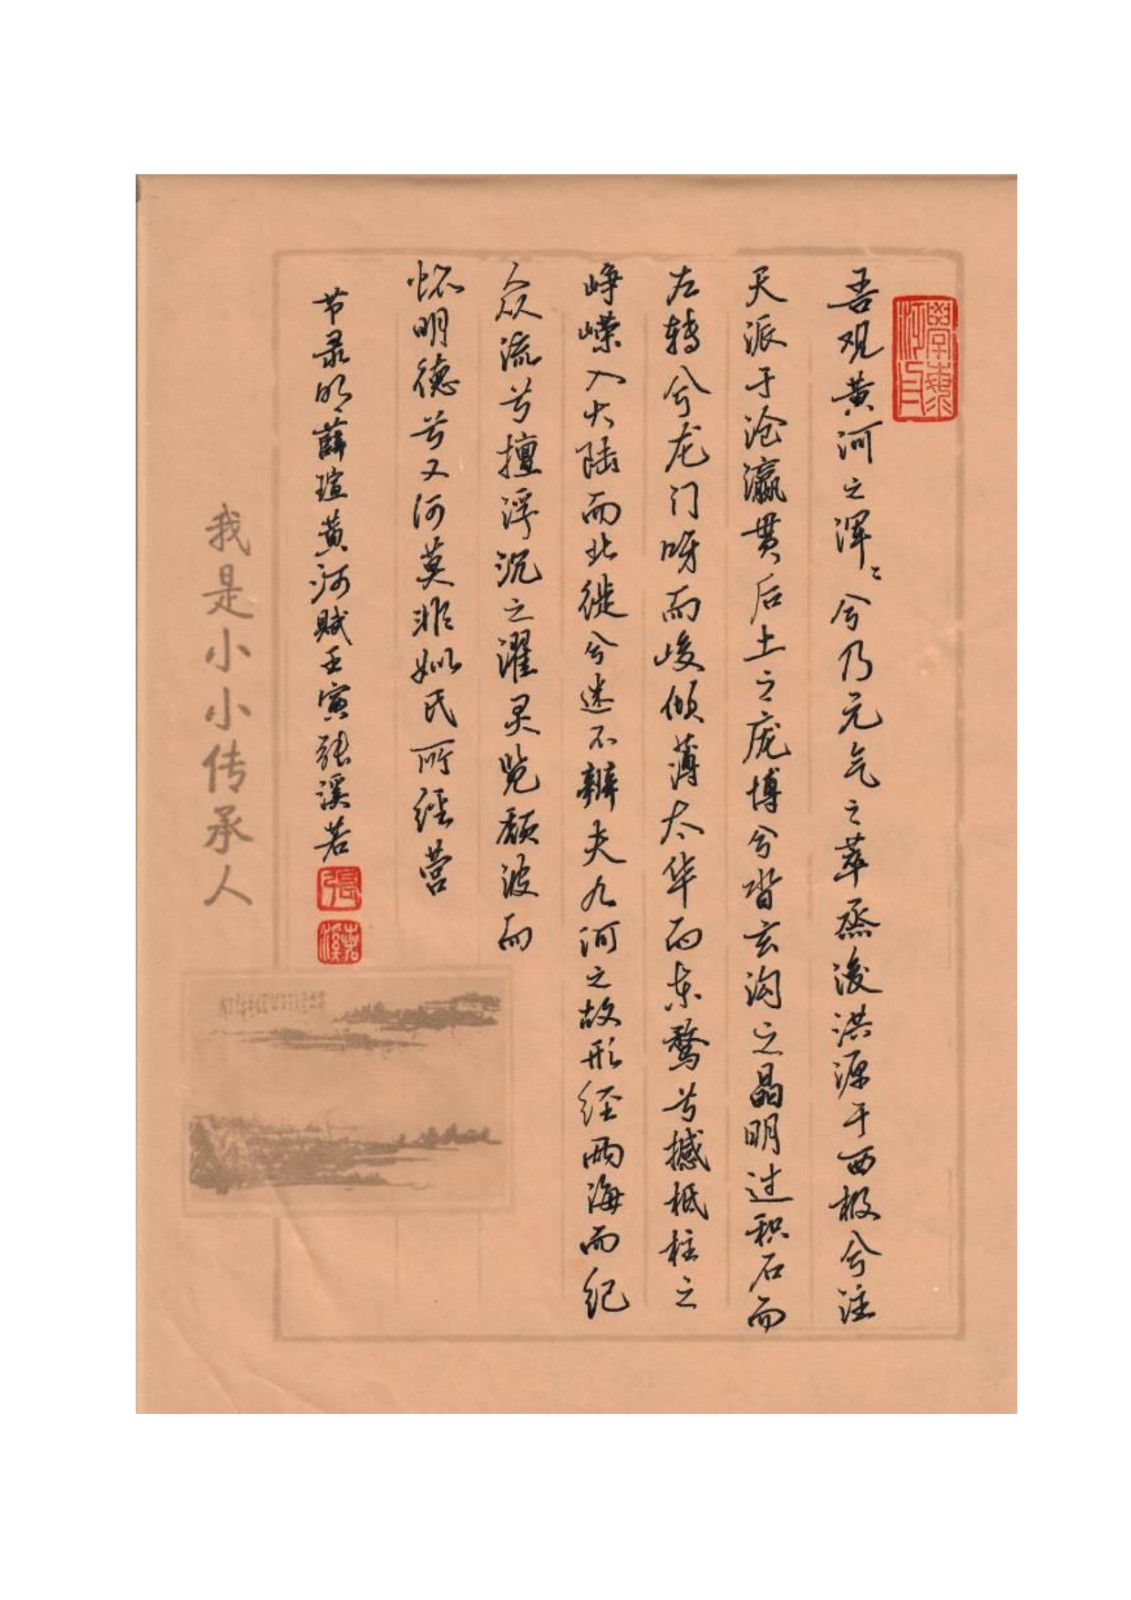 吾观黄河之浑〻兮乃元气之萃蒸浚洪源于西极兮注
天派于沧瀛贯后土之庞博兮沓玄沟之晶明过积石而
左转兮龙门呀而峻倾薄太华而东鹜兮撼柢柱之
峥嵘入大陆而北徙兮迷不辨夫九河之故形经两海而纪
众流兮擅浮沉之濯灵览颓波而
怀明德兮又河莫非姒氏所经营
节录明薛瑄黄河赋壬寅张溪若
張
溪若
我是小小传承人